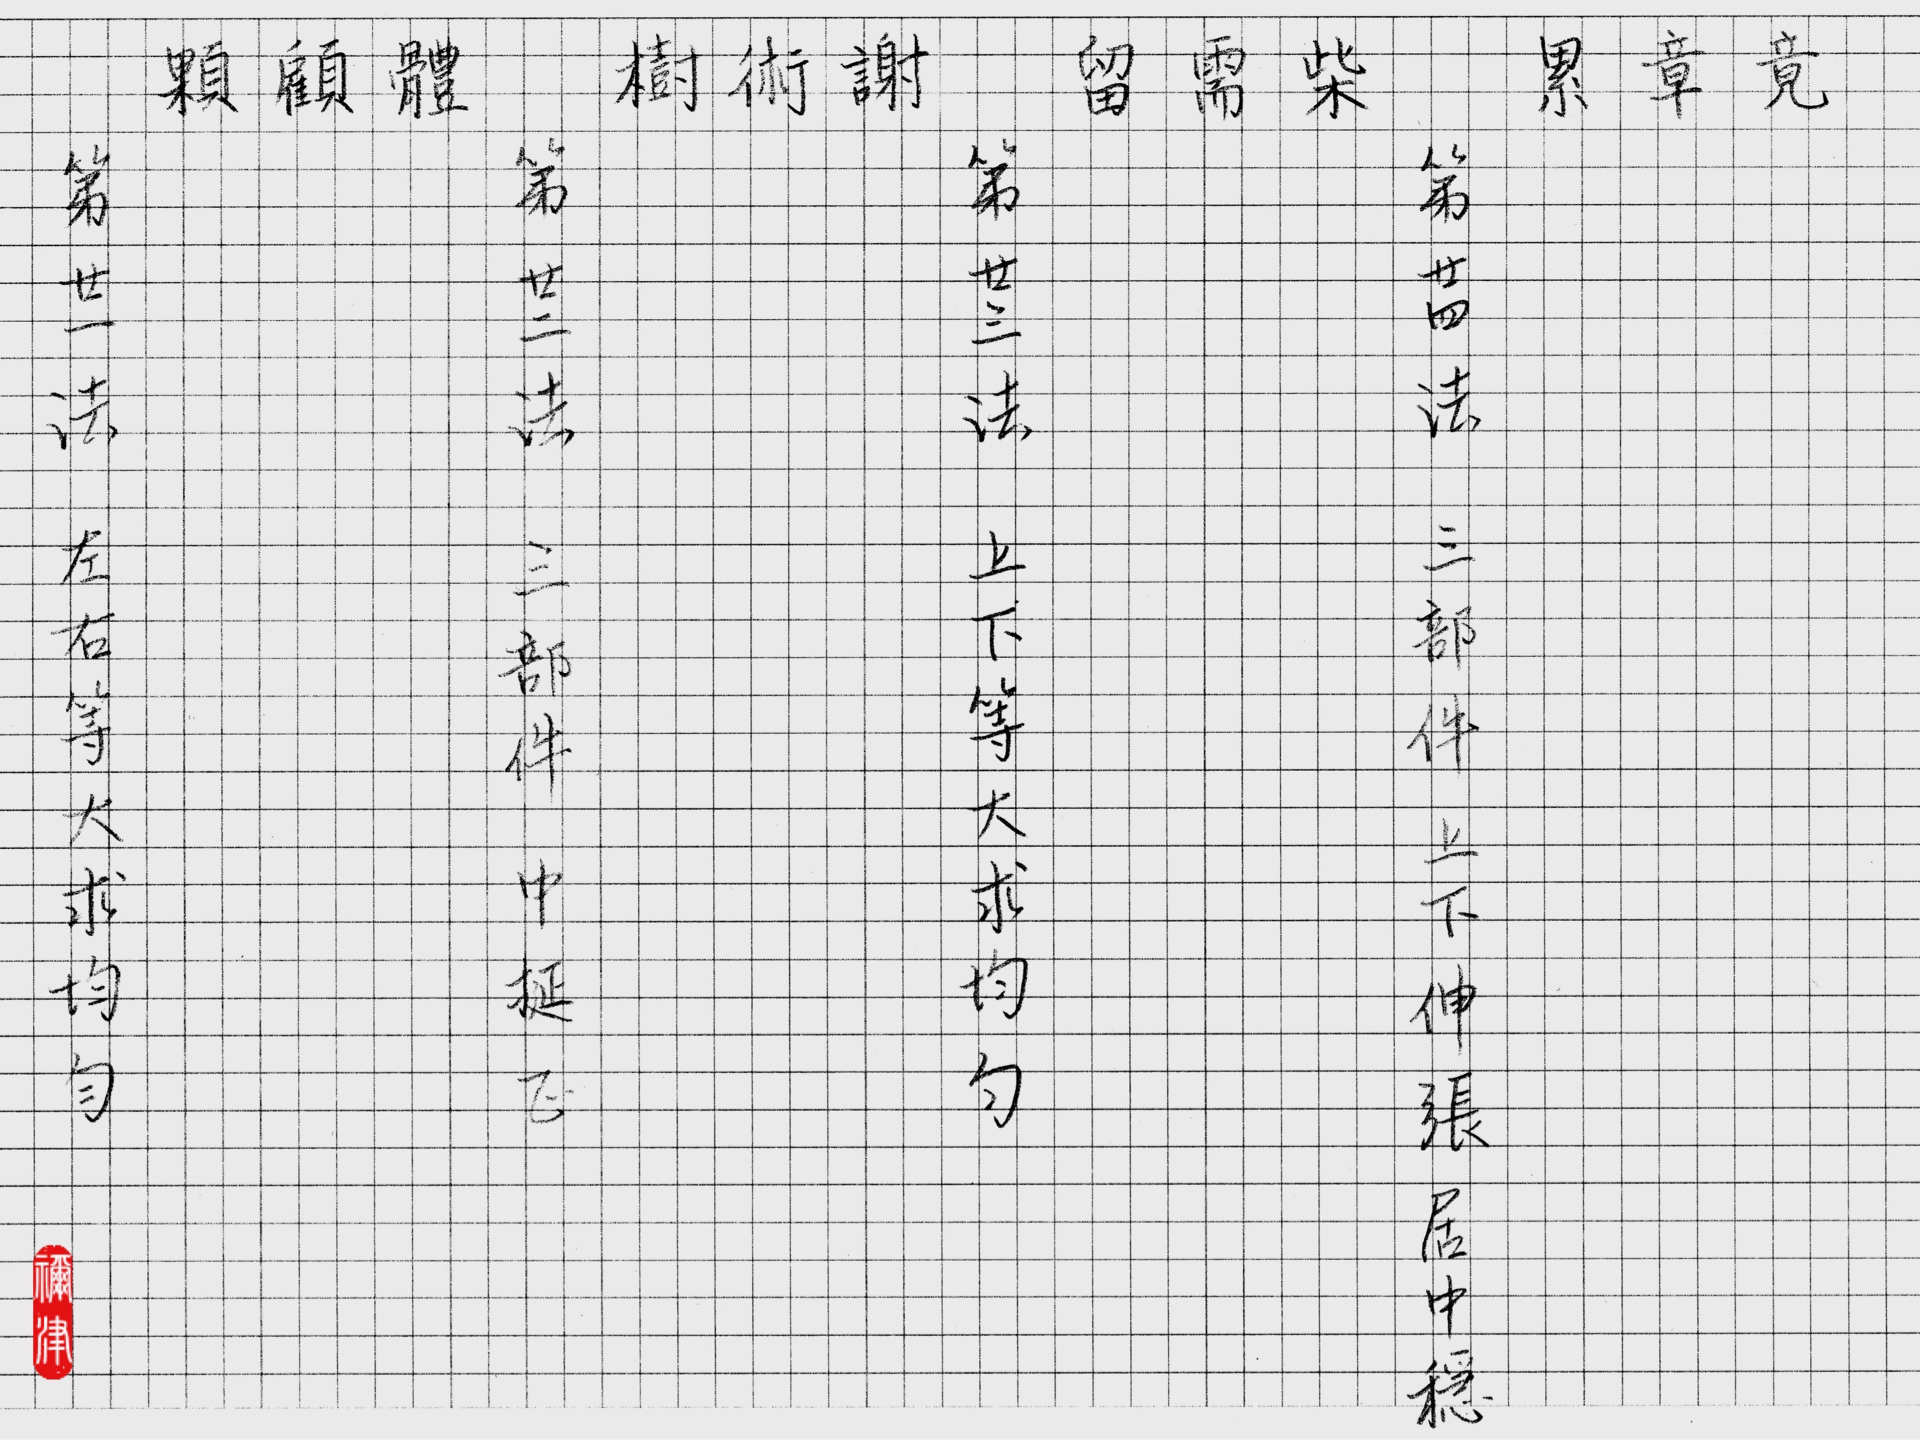 顆 顧 體
第廿一法 左右等大求均勻
樹 術 謝
第廿二法 三部件 中挺正
留 需 柴
第廿三法 上下等大求均勻
累 章 竟
第廿四法 三部件 上下伸張 居中穩
禰津